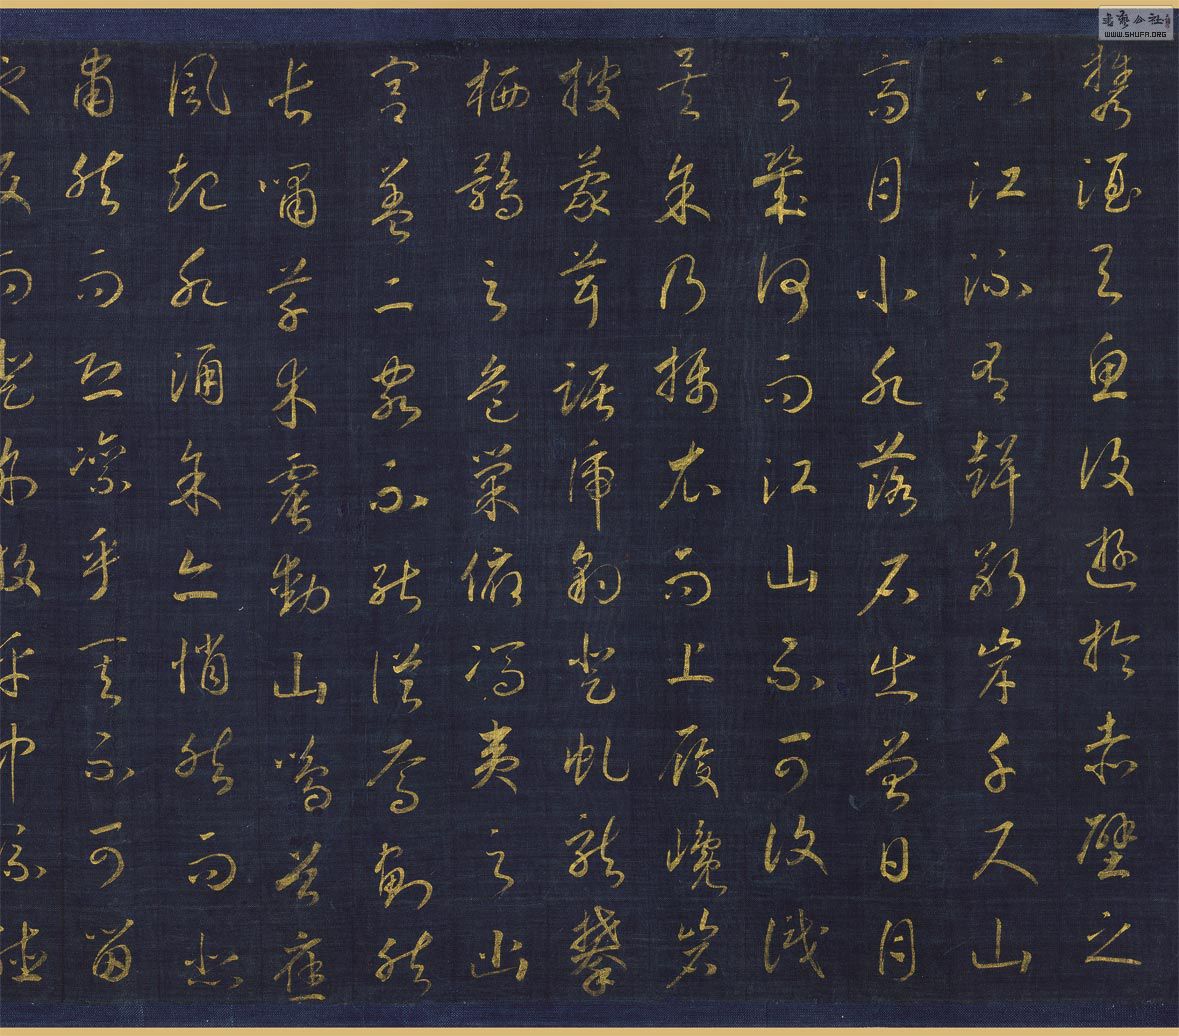 攜酒與魚復遊於赤壁之
下江流有聲斷岸千尺山
高月小水落石出曾日月
之幾何而江山不可復識
矣余乃攝衣而上履巉岩
披蒙茸踞虎豹登虬龍攀
栖鶻之危巢俯馮夷之幽
宮蓋二客不能從焉劃然
長嘯草木震動山鳴谷應
風起水涌余亦悄然而悲
肅然而恐凜乎其不可留
也反而登舟放乎中流聽
書藝公社
WWW.SHUFA.ORG